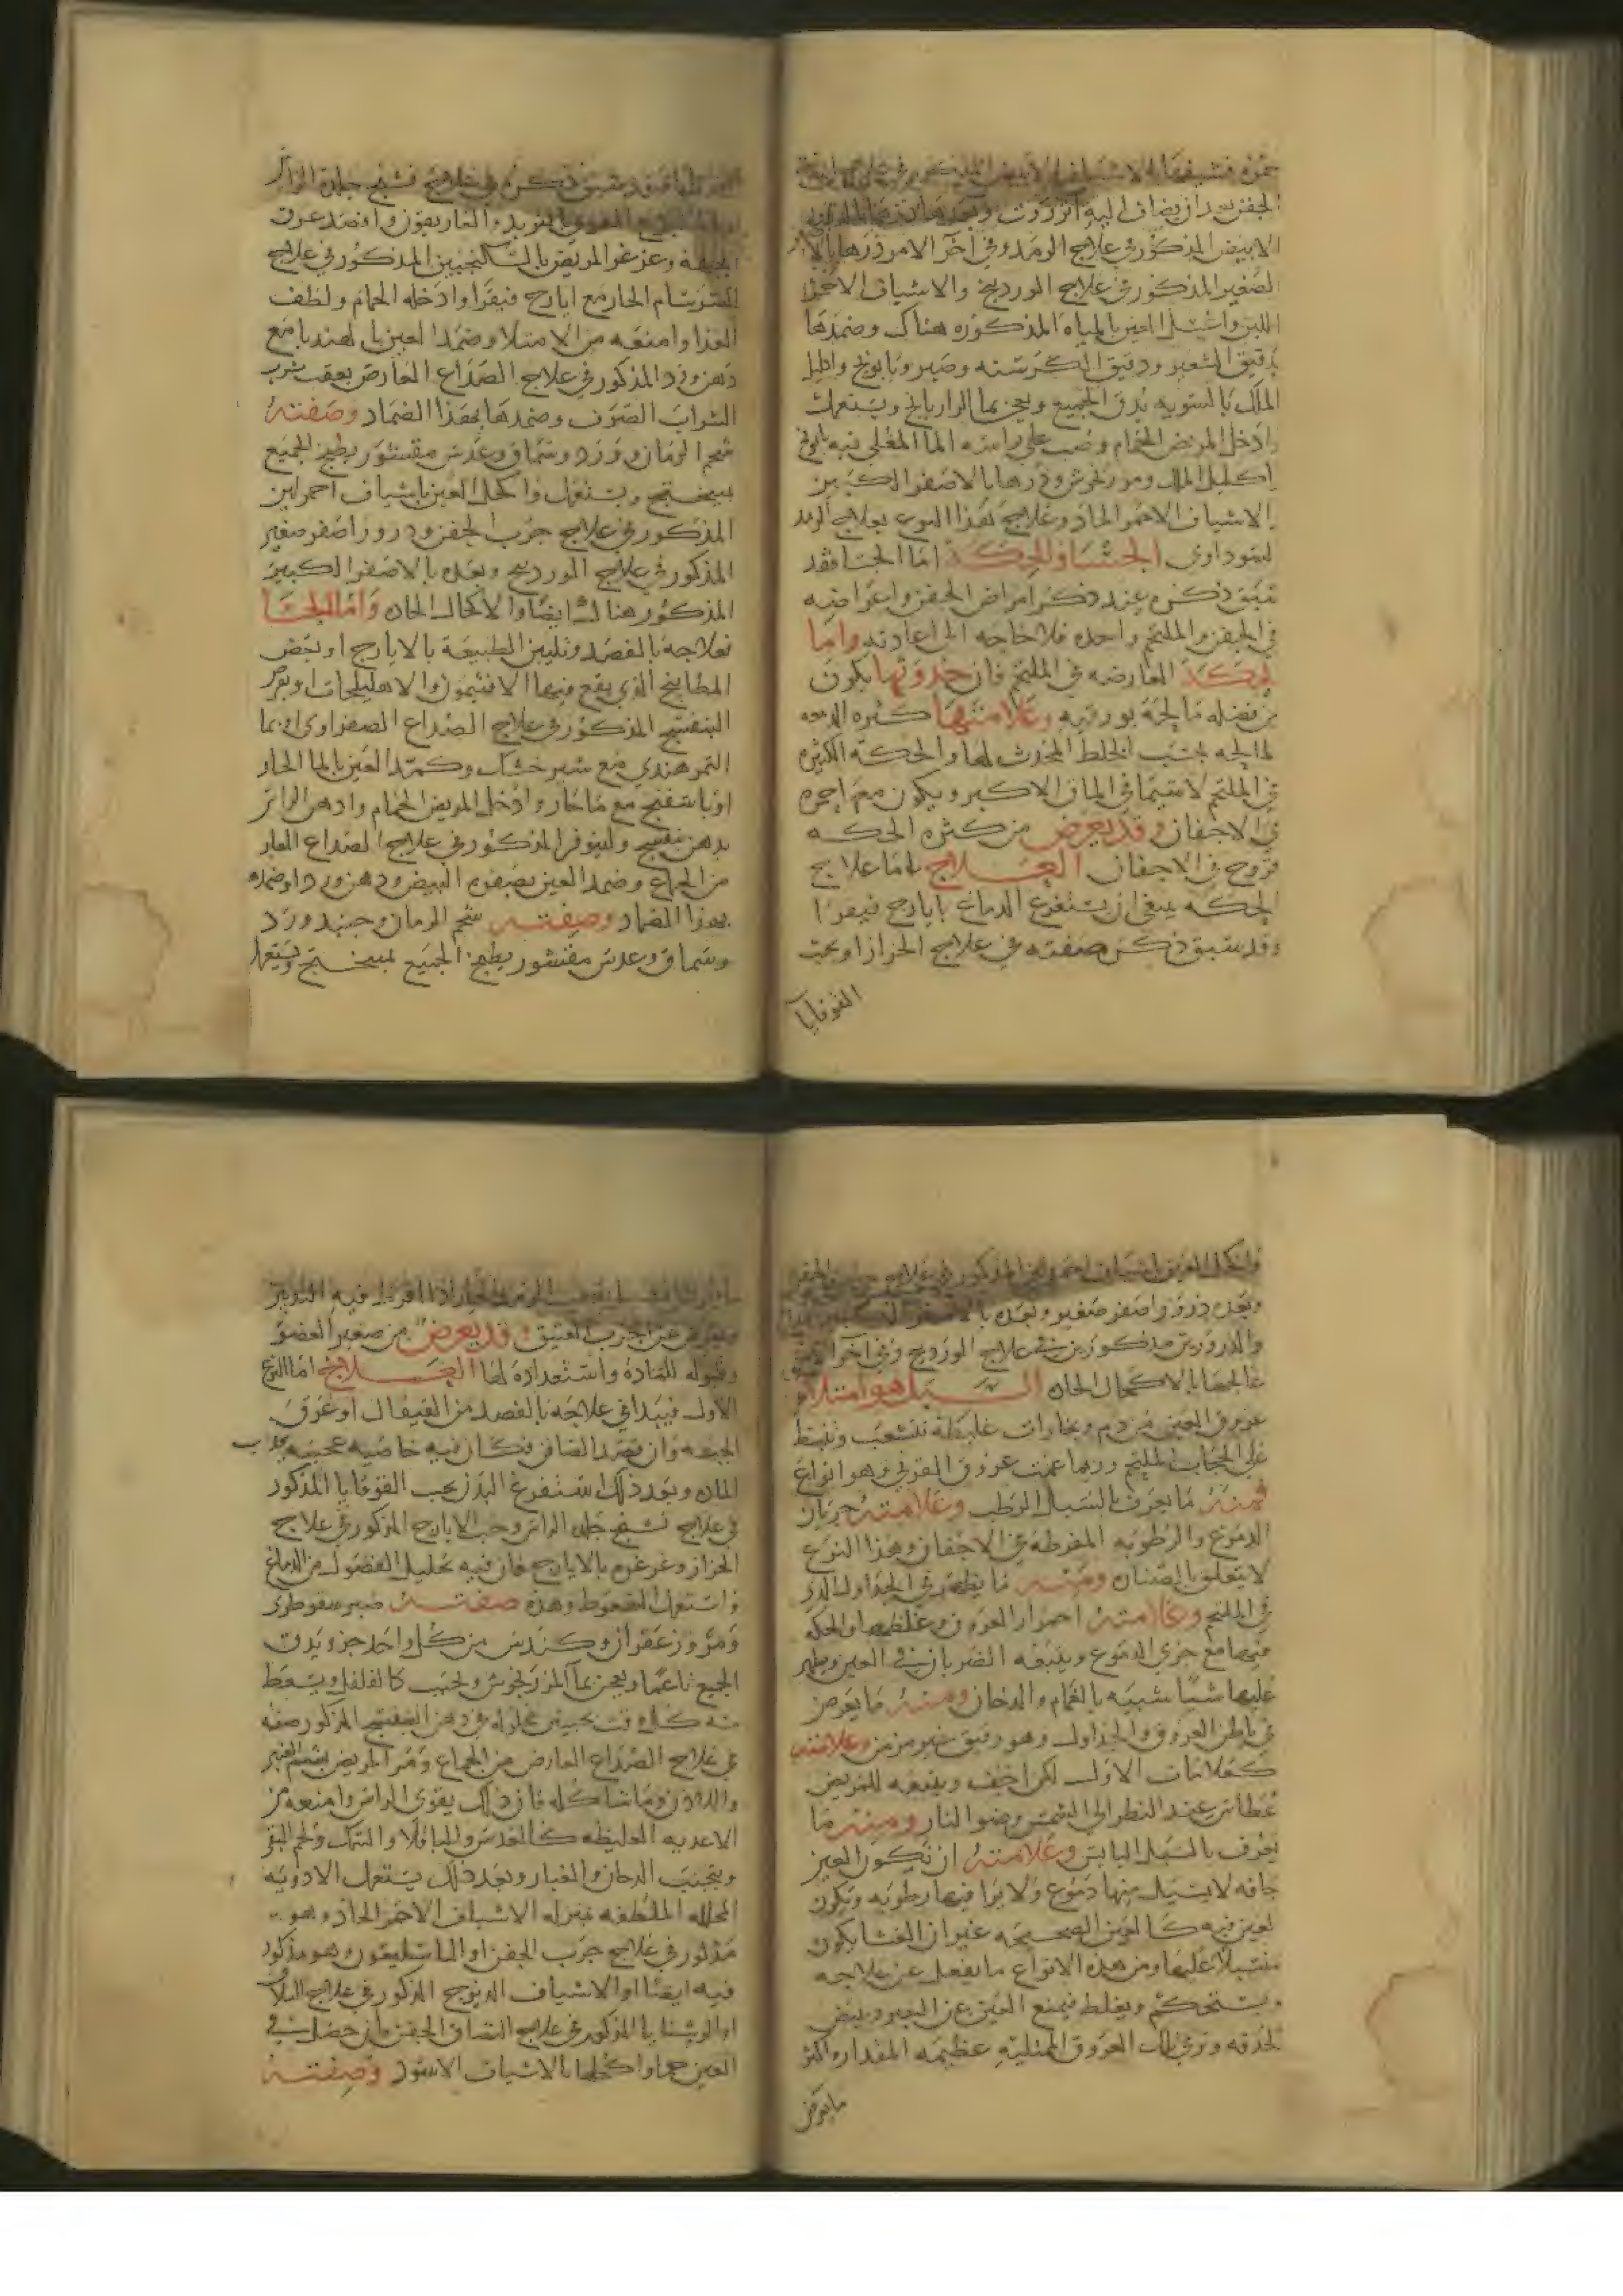 الجفن بعد ان يضاف اليه انزروت وبعدها
الابيض المذكور في علاج الرمد وفي آخر الامر ذرها بالا
لصغير المذكور في علاج الوردينج والاشياف الاحمر
اللين واغسل العين بالمياه المذكوره هناك وضمدها
بدقيق الشعير ودقيق الكرسنه وصبر وبابونج واكليل
الملك بالسويه يدق الجميع ويعجن بما الرازيانج ويستعمل
وادخل المريض الحمام وصب على راسه الما المغلي فيه بابونج
اكليل الملك ومرزنجوش وذرها بالاصفر الكبير
بالاشياف الاحمر الحاد وعلاج هذا النوع بعلاج الرمد
لسوداوي الجسا والحكة اما الجسا فقد
سبق ذكره عند ذكر امراض الجفن واعراضه
في الجفن والملتحم واحده فلا حاجه الى اعادته واما
لحكة العارضه في الملتحم فان حدوثها يكون
من فضله مالحة بورقيه وعلامتها كثره الدمعه
لمالحه بحسب الخلط المحدث لها والحكة الكثيره
في الملتحم لاسيما في الماق الاكبر ويكون معه احمره
في الاجفان وقد يعرض من كثره الحكه
قروح في الاجفان العلاج اما علاج
الحكه ينبغي ان يستفرغ الدماغ بايارج فيقرا
وقد سبق ذكر صفته في علاج الحزاز او بحب
القوقايا
سبق ذكره في علاج تشنج جلدة الراس
وافصد عرق
الجبهة وغرغر المريض بالسكنجبين المذكور في علاج
السرسام الحار مع ايارج فيقرا وادخله الحمام ولطف
الغذا وامنعه من الامتلا وضمد العين بالهندبا مع
دهن ورد المذكور في علاج الصداع العارض بعقب شرب
الشراب الصرف وضمدها بهذا الضماد وصفته
شحم الرمان وورد وسماق وعدس مقشور يطبخ الجميع
بميبختج ويستعمل واكحل العين باشياف احمر لين
المذكور في علاج جرب الجفن وذرور اصفر صغير
المذكور في علاج الوردينج وبعده بالاصفر الكبير
المذكور هناك ايضا والاكحال الحاده واما الجسا
فعلاجه بالفصد وتليين الطبيعة بالايارج او ببعض
المطابيخ الذي يقع فيها الافتيمون والاهليلجات او بقرص
البنفسج المذكور في علاج الصداع الصفراوي او بما
التمر هندي مع شير خشك وكمد العين بالما الحار
او باسفنج مع ما حار وادخل المريض الحمام وادهن الراس
بدهن بنفسج ولينوفر المذكور في علاج الصداع العار
من الجماع وضمد العين بصفره البيض ودهن ورد او ضمده
بهذا الضماد وصفته شحم الرمان وورد
وسماق وعدس مقشور يطبخ الجميع بميبختج ويستعمل
واكحل العين باشياف احمر لين المذكور في علاج جرب الجفن
وبعده ذرور اصفر صغير وبعده بالاصفر الكبير
والذرورين مذكورين في علاج الوردينج وفي آخر الامر
عالجها بالاكحال الحاده السبل هو امتلا
عروق العين من دم وبخارات غليظة تتشعب وتنبسط
على الحجاب الملتحم وربما عمت عروق القرني وهو انواع
فمنه ما يعرف بالسبل الرطب وعلامته جريان
الدموع والرطوبه المفرطه في الاجفان وهذا النوع
لا يتعلق بالصنان ومنه ما يظهر في الجداول الذي
في الملتحم وعلامته احمرار العروق وغلظها والحكه
فيها مع جري الدموع ويتبعه الضربان في العين ويظهر
عليها شيا شبيه بالغمام والدخان ومنه ما يعرض
في باطن العروق والجداول وهو رقيق غير مزمن وعلامته
كعلامات الاول لكن اخف ويتبعه للمريض
عطاس عند النظر الى الشمس وضو النار ومنه ما
يعرف بالسبل اليابس وعلامته ان تكون العين
جافه لا يسيل منها دموع ولا يرا فيها رطوبه وتكون
لعين فيه كالعين الصحيحه غير ان الغشا يكون
منسبلا عليها ومن هذه الانواع ما يغفل عن علاجه
ويستحكم ويغلظ فيمنع العين عن البصر ويبيض
لحدقه وترى تلك العروق الممتليه عظيمه المقدار اكثر
مايعرض
ويعرض عن الجرب العتيق وقد يعرض من صغير العضو
وقبوله للمادة واستعداده لها العلاج اما النوع
الاول فيبدا في علاجه بالفصد من القيفال او عرق
الجبهه وان فصد الصافن فكان فيه خاصيه عجيبه يجذب
الماده وبعد ذلك استفرغ البدن بحب القوقايا المذكور
في علاج تشنج جلد الراس وحب الايارج المذكور في علاج
الحزاز وغرغره بالايارج فان فيه تحليل الفضول من الدماغ
واستعمل السعوط وهذه صفته صبر سقوطري
ومر وزعفران وكندس من كل واحد جزو يدق
الجميع ناعما ويعجن بما المرزنجوش ويحبب كالفلفل ويسعط
منه كل وقت بحبتين محلوله في دهن البنفسج المذكور صفه
في علاج الصداع العارض من الجماع ومر المريض بشم العنبر
واللاذن وما شاكله فان ذلك يقوي الراس وامنعه من
الاغذيه الغليظه كالعدس والباقلا والسمك ولحم البقر
ويتجنب الدخان والغبار وبعد ذلك يستعمل الادويه
المحلله الملطفه بمنزله الاشياف الاحمر الحاد وهو
مذكور في علاج جرب الجفن او الباسليقون وهو مذكور
فيه ايضا او الاشياف الديزج المذكور في علاج السلاق
او الروشنايا المذكور في علاج التصاق الجفن وان حصل في
العين حما واكحلها بالاشياف الاسود وصفته